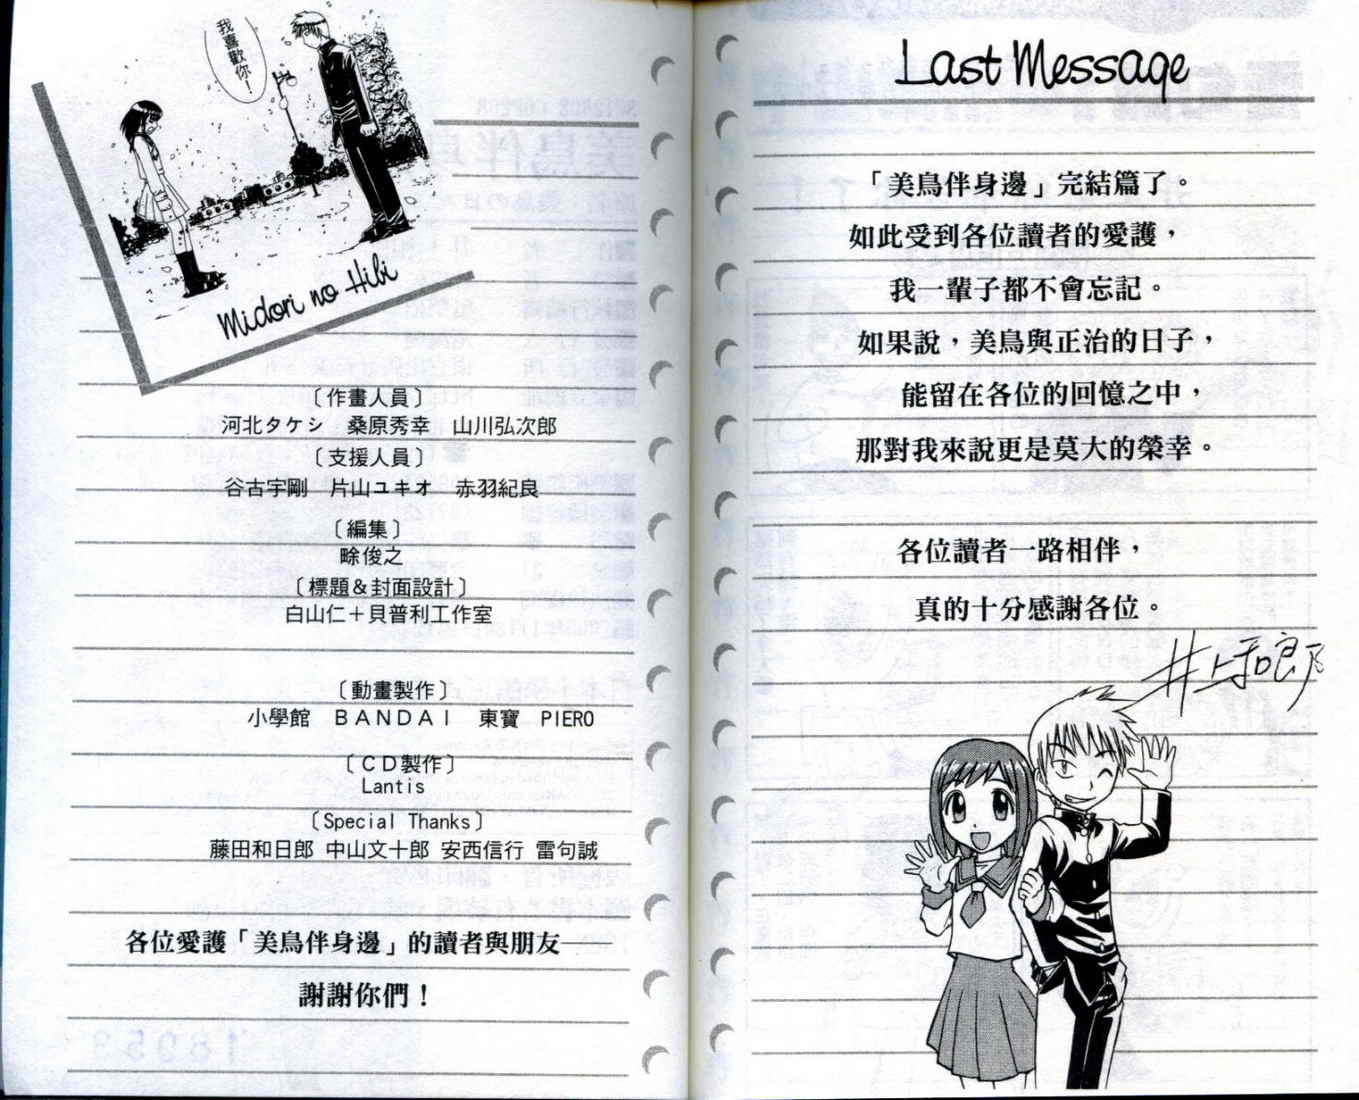 我喜歡你！
Midori no Hibi
〔作畫人員〕
河北タケシ　桑原秀幸　山川弘次郎
〔支援人員〕
谷古宇剛　片山ユキオ　赤羽紀良
〔編集〕
畭俊之
〔標題＆封面設計〕
白山仁＋貝普利工作室
〔動畫製作〕
小學館　ＢＡＮＤＡＩ　東寶　PIERO
〔ＣＤ製作〕
Lantis
〔Special Thanks〕
藤田和日郎 中山文十郎 安西信行 雷句誠
各位愛護「美鳥伴身邊」的讀者與朋友
謝謝你們！
Last Message
「美鳥伴身邊」完結篇了。
如此受到各位讀者的愛護，
我一輩子都不會忘記。
如果說，美鳥與正治的日子，
能留在各位的回憶之中，
那對我來說更是莫大的榮幸。
各位讀者一路相伴，
真的十分感謝各位。
井上和郎